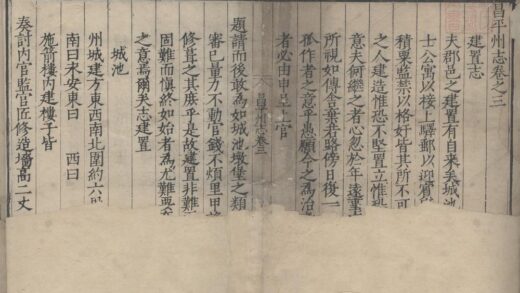 昌平州志卷之三
建置志
夫郡邑之建置有自来矣城池
士公寓以接上驛郵以迎賓
積粟監禁以格奸皆其所不可
之人建造惟恐不堅置立惟恐
意夫何繼之者心忽於年遠事
所視如傳舍棄若路傍日後一
孤作者之意乎愚願今之為治
者必由申呈上官
昌平州志卷三
題請而後敢為如城池墩堡之類
審已量力不動官錢不煩里甲
修葺之其庶乎是故建置非難
固難而慎終如始者為尤難要
之意焉爾矣志建置
城池
州城建方東西南北圍約六里
南曰永安東曰 西曰
施箭樓内建樓子皆
奏討内官監官匠修造墻高二丈